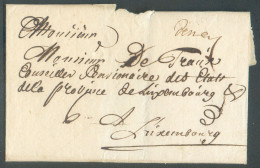 Monsieur
Monsieur De Traux
Conseiller Pensionaire des Etats
de la province de Luxembourg
A Luxembourg